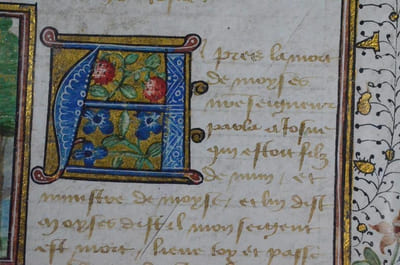 Apres la mort
de moyses
nre seigneur
parla a Josue
qui estoit filz
de num / et
ministre de moyse / et lui dist
Moyses dist il mon sergent
est mort / lieve toy et passe